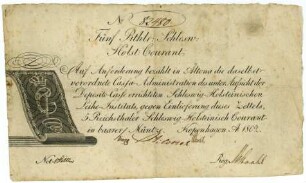 N 83480.
Fünf Rthlr Schlesw.
Holst. Courant.
Auf Anforderung bezahlt in Altona die daselbst
verordnete Casse-Administration des unter Aufsicht der
Deposito-Casse errichteten Schleswig-Holsteinischen
Leihe-Instituts, gegen Einlieferung dieses Zettels,
5 Reichsthaler Schleswig-Holsteinisch Courant
in baarer Müntze Kopenhagen A 1802.